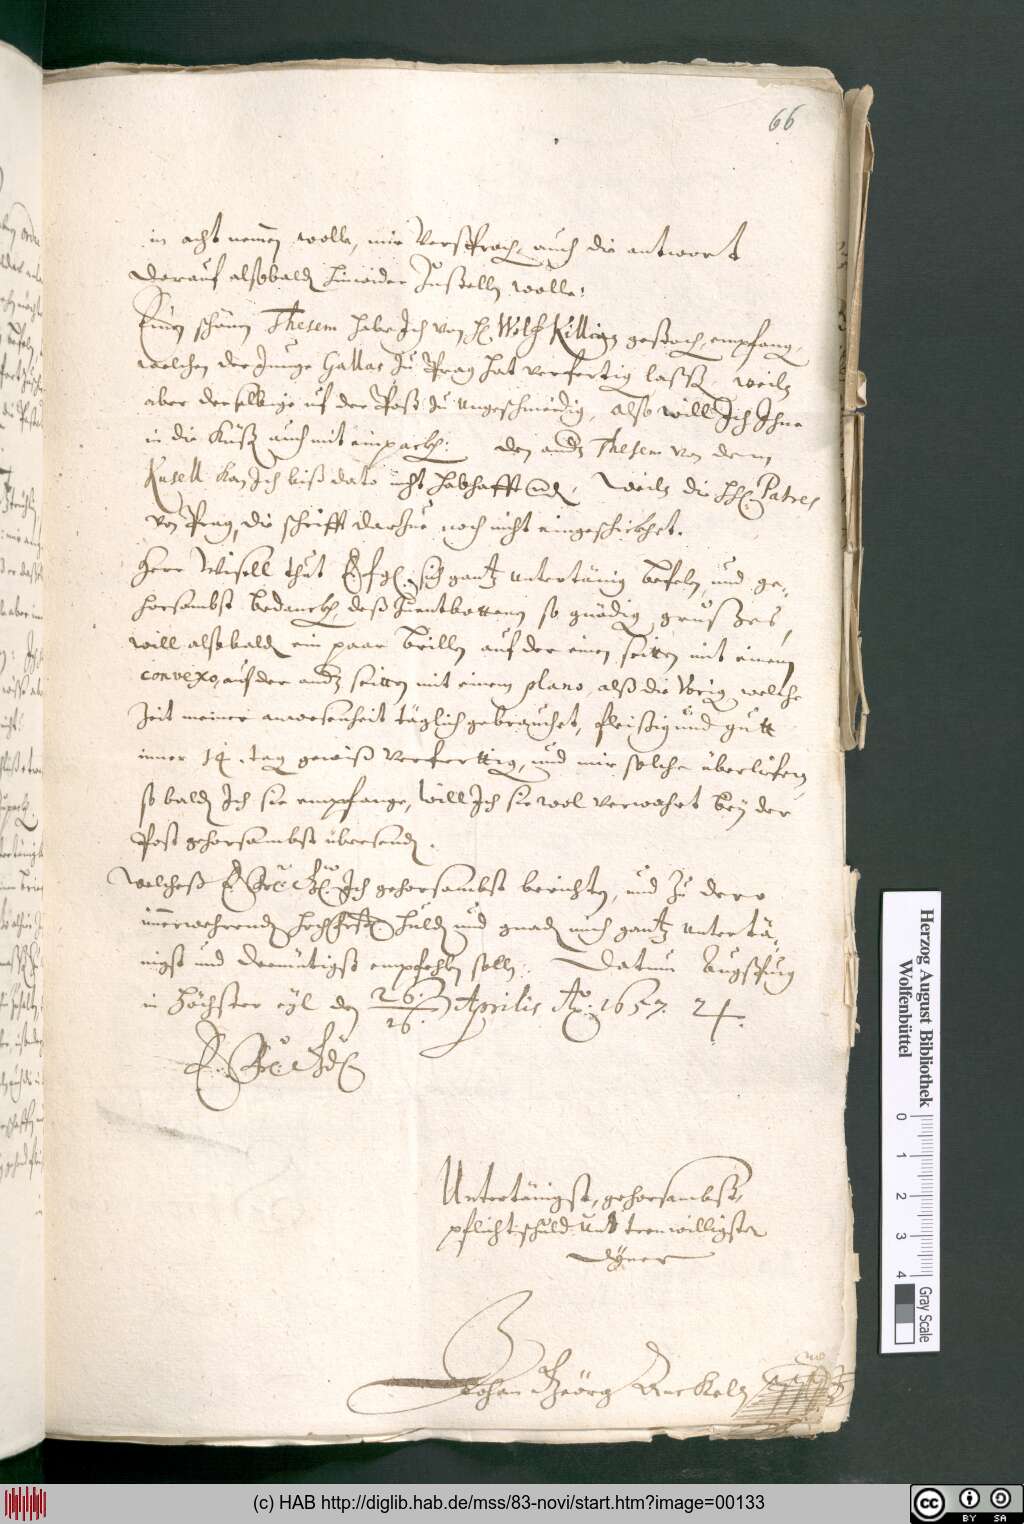 66
in acht nemen wolle, mir versproch, auch die antwort
darauf alsobald hinwider Zustellen wolle.
Einen schönen Thesem habe Ich von H. Wolff Killian gestoch, empfang,
welchen der Junge Gallas Zu Prag hat verfertig lassen, weiln
aber derselbige uf der Post zu ungeschmeidig, also will Ich Ihne
in die Küste auch mit einpacken. den andern Thesem von dem
Kusell kan Ich biß dato nicht habhafft werden, weiln die HH. Patres
von Prag, die schrifft darzue noch nicht eingeschickhet.
Herr Wisell thut E. fgl. sich gantz untertänig befeln, und ge-
horsambst bedancken, deß Zuentbottenen so gnädig grußes,
will alsobald ein paar brillen auf der einen seitten mit einem
convexo, auf der andern seitten mit einem plano, alß die vorig, welche
Zeit meiner anwesenheit täglich gebrauchet, fleißig und gutt
inner 14. tag gewiß verferttig, und mir solche überlifern,
so bald Ich sie empfange, will Ich sie wol verwahrt bey der
Post gehorsambst übersenden.
Welcheß E. Ich gehorsambst berichten, und Zu dero
immerwehrenden hochfrstl. hulden und gnaden mich gantz untertä-
nigst und demütigst empfehlen sollen. Datum Augspurg
in höchster eyl den 26./16. Aprilis Ao. 1657. ♃.
E.
Untertänigst, gehorsambst,
pflichtschuld und treuwilligster
dyner
Johan Geörg Anckell
Herzog August Bibliothek
Wolfenbüttel
0 1 2 3 4
Gray Scale
(c) HAB http://diglib.hab.de/mss/83-novi/start.htm?image=00133
cc BY SA